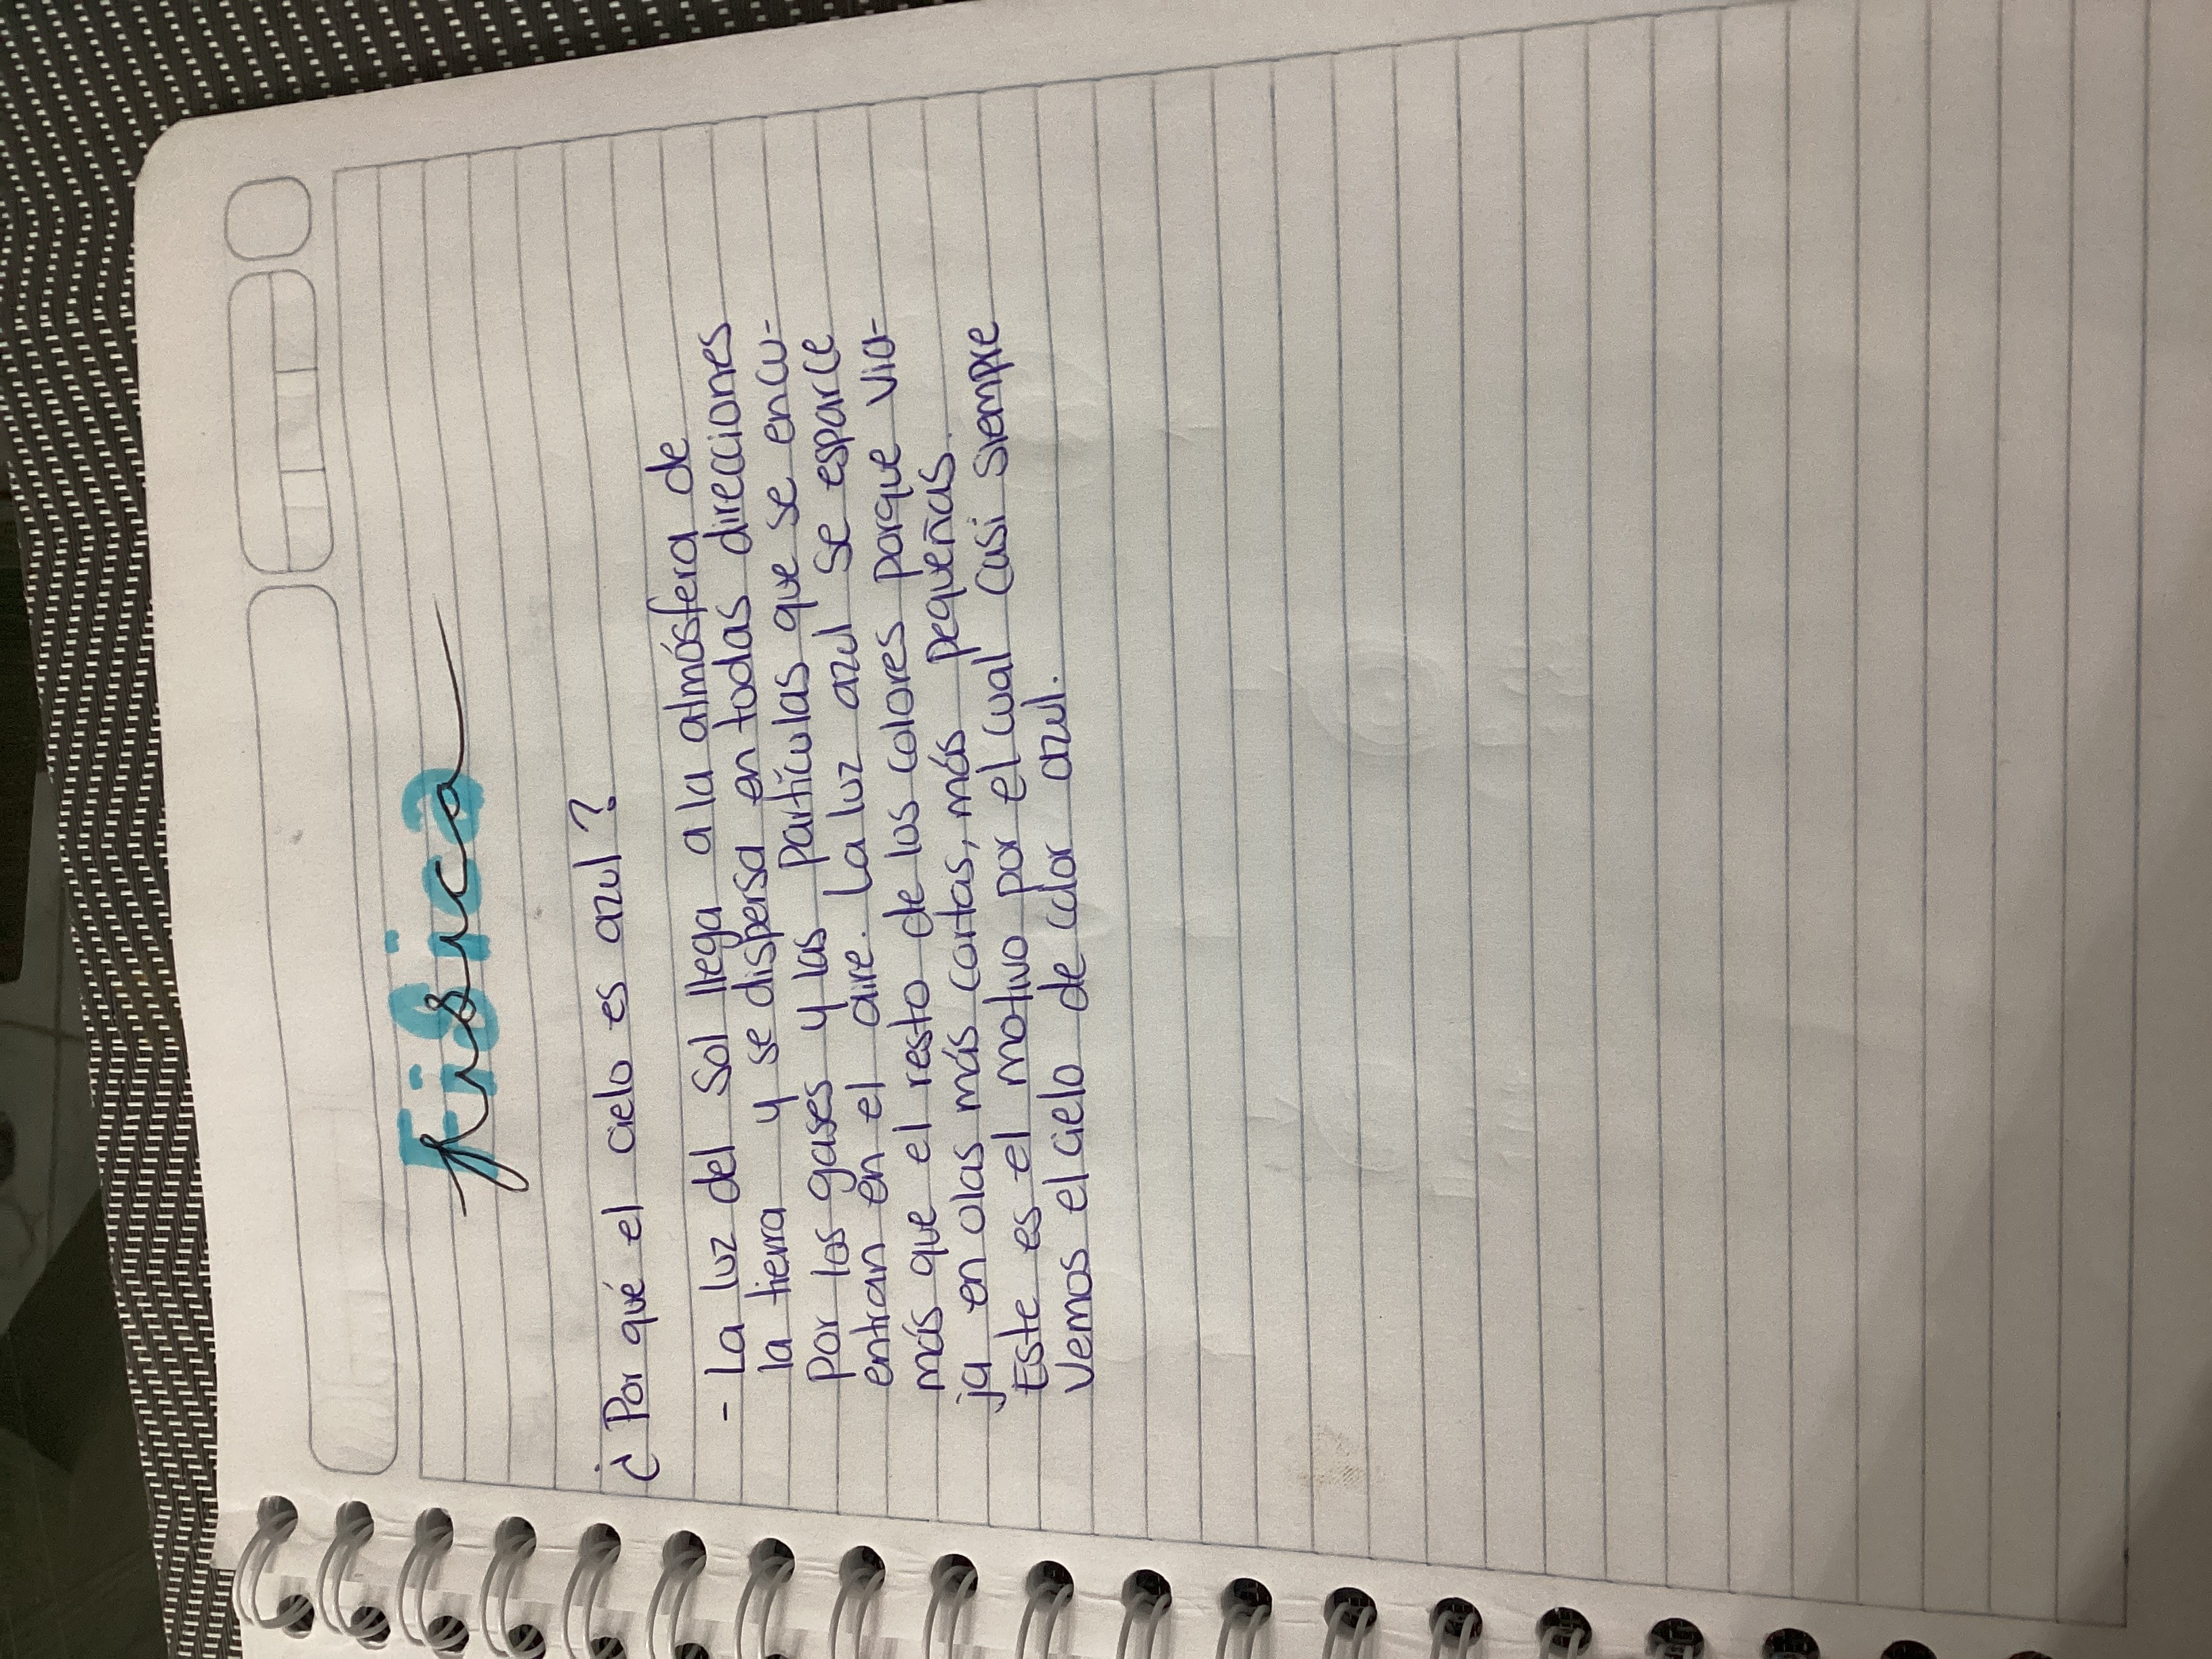 Física
¿Por qué el cielo es azul?
- La luz del Sol llega a la atmósfera de
la tierra y se dispersa en todas direcciones
por los gases y las partículas que se encu-
entran en el aire. La luz azul se esparce
más que el resto de los colores porque via-
ja en olas más cortas, más pequeñas.
Este es el motivo por el cual casi siempre
vemos el cielo de color azul.